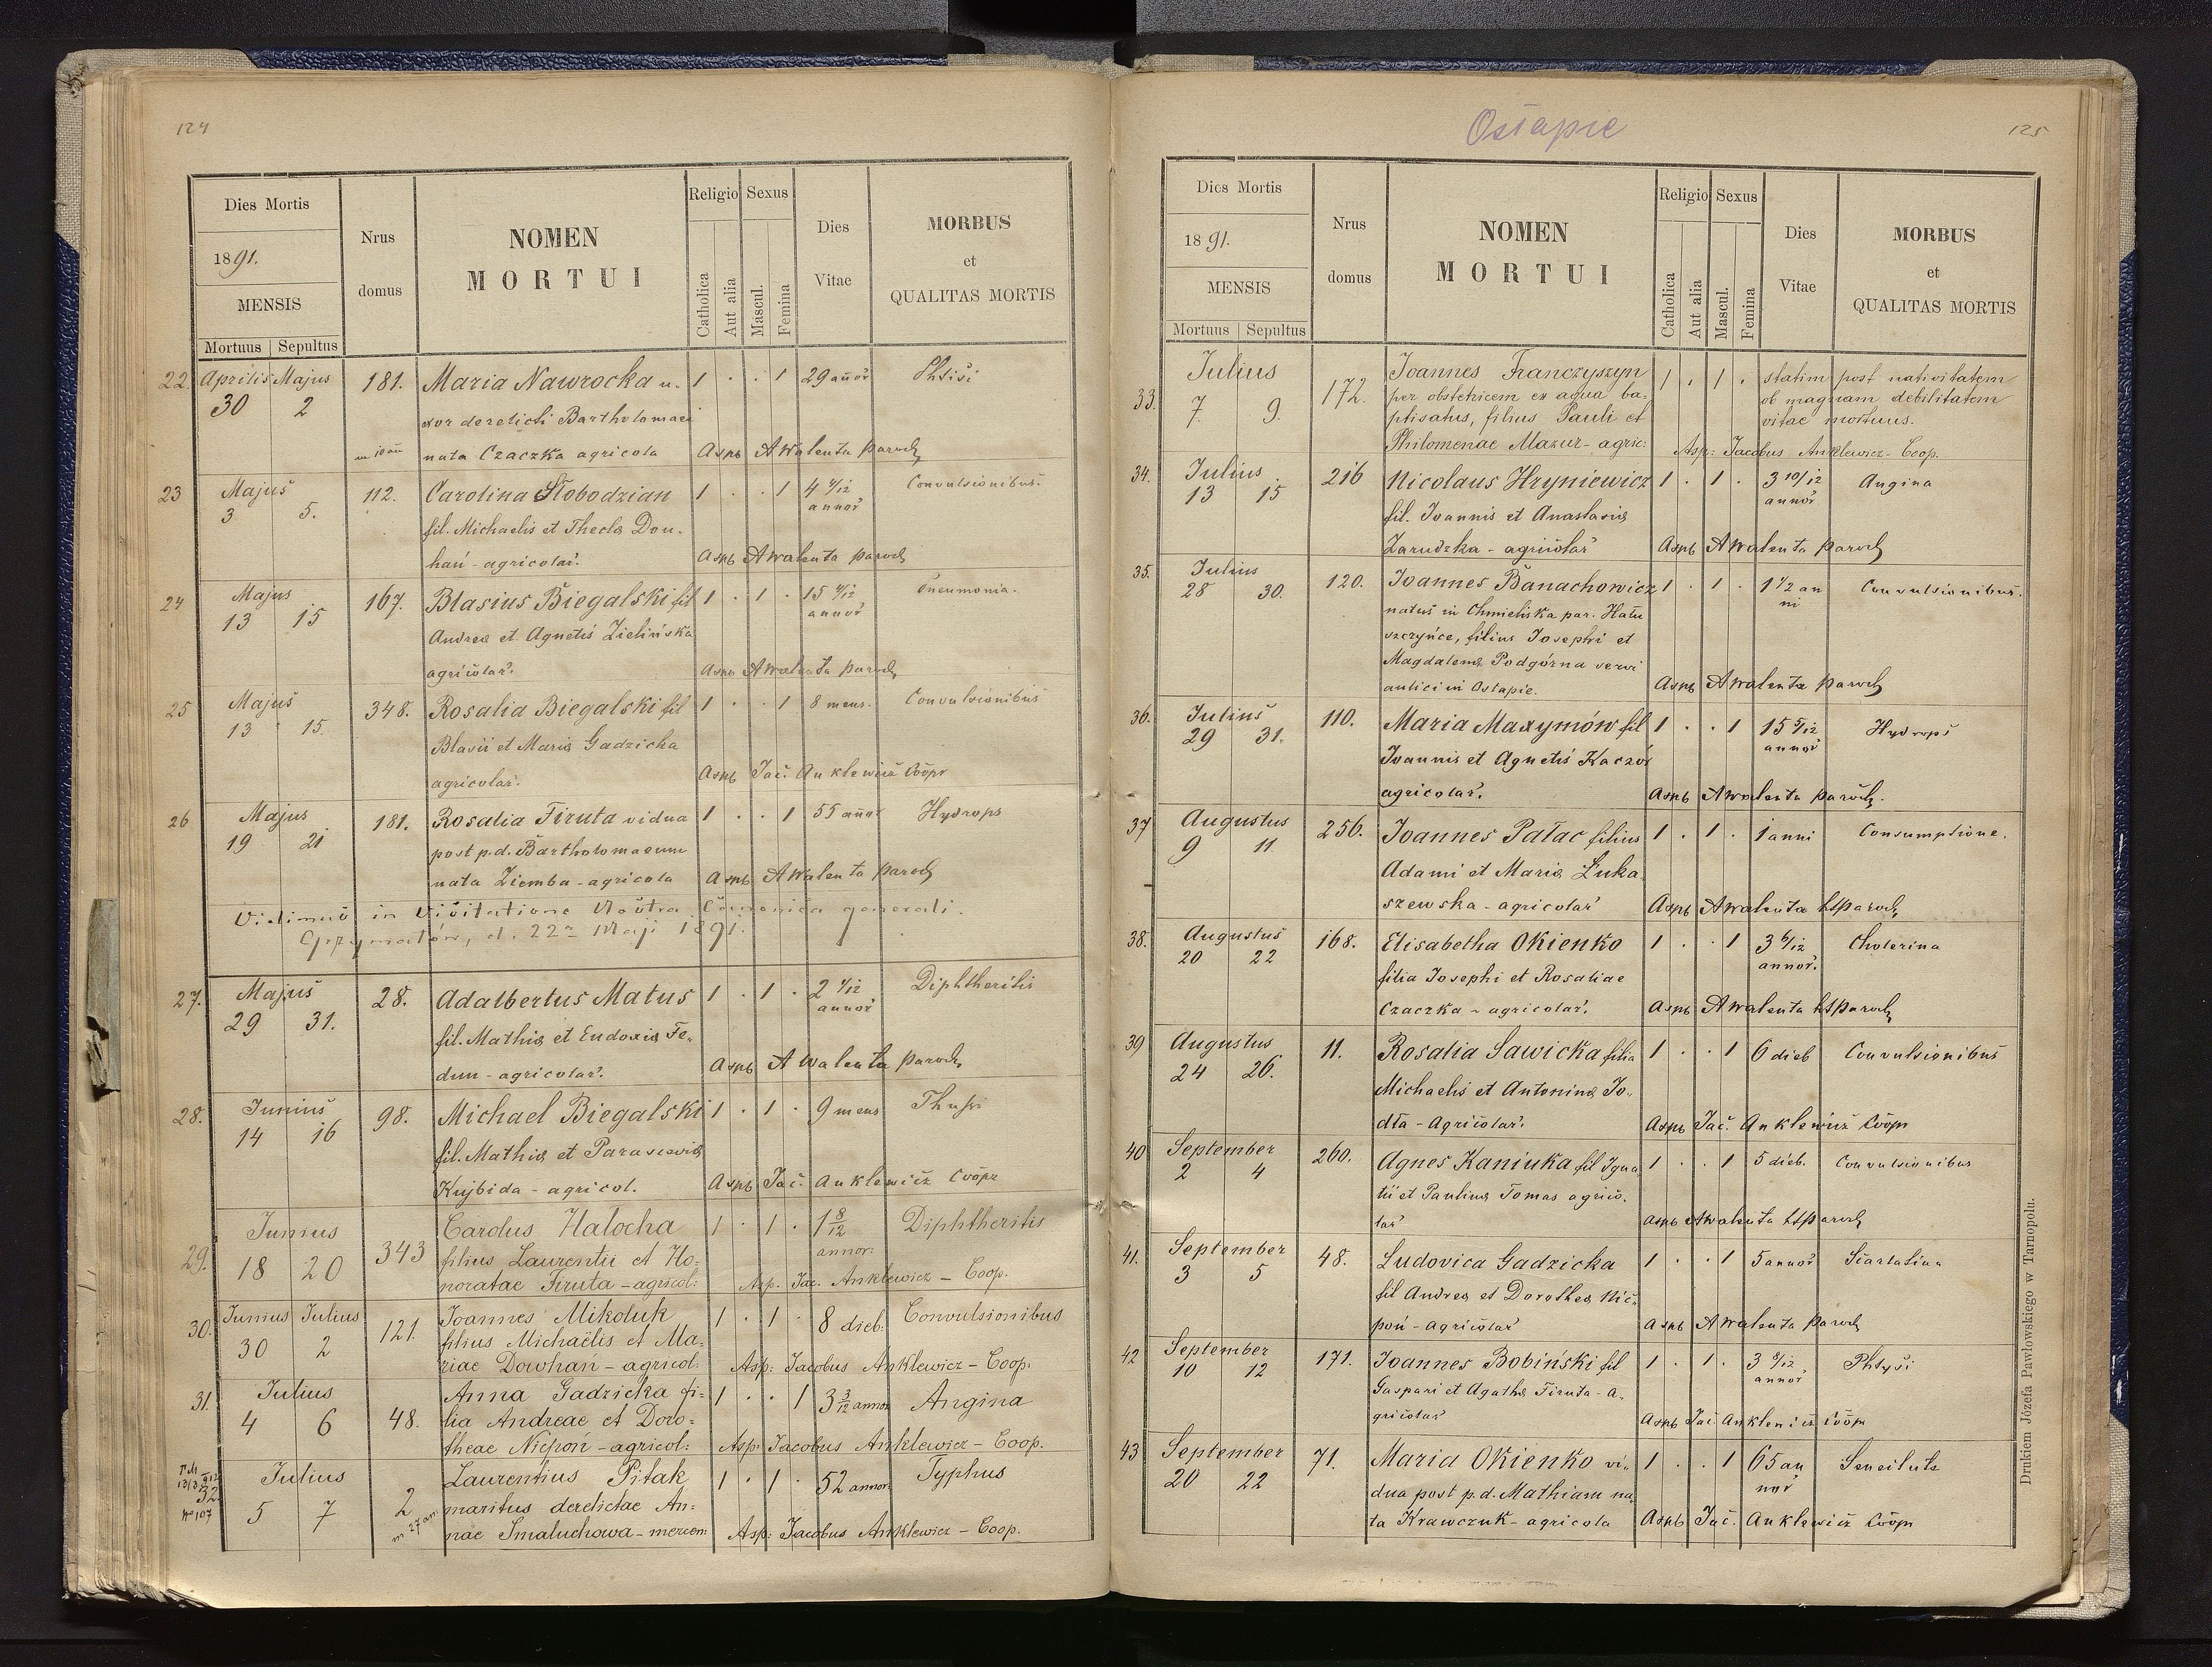 124
Dies Mortis
1891.
MENSIS
Mortuus Sepultus
Nrus
domus
NOMEN
MORTUI
Religio Sexus
Catholica
Aut alia
Mascul.
Femina
Dies
Vitae
MORBUS
et
QUALITAS MORTIS
22. Aprilis Majus 181. Maria Nawrocka u- 1 . . 1 29 annor Phtisi
30 2 xor derelicti Bartholomaei
nata Czaczka agricola Aspb AWalenta paroch
23 Majus 112. Carolina Słobodzian 1 . . 1 4 4/12 Convulsionibus.
3 5. fil. Michaelis et Theclae Dou- annor
hań - agricolar. Aspb AWalenta paroch
24 Majus 167. Blasius Biegalski fil 1 . 1 . 15 4/12 Pneumonia.
13 15 Andreae et Agnetis Zielińska annor
agricolar. Aspb AWalenta paroch
25 Majus 348. Rosalia Biegalski fil 1 . . 1 8 mens. Convulsionibus
13 15. Blasii et Mariae Gadzicka
agricolar. Aspb Jac. Anklewicz Coopr
26 Majus 181. Rosalia Firuta vidua 1 . . 1 55 annor Hydrops
19 21 post p.d. Bartholomaeum
nata Ziemba - agricola Aspb AWalenta paroch
Vidimus in Visitatione Nostra Canonica generali.
Grzymałów, d. 22a Maji 1891.
27. Majus 28. Adalbertus Matus 1 . 1 . 2 1/12 Diphtheritis
29 31. fil. Mathiae et Eudoxiae Fe- annor
dun - agricolar. Aspb AWalenta paroch
28. Junius 98. Michael Biegalski 1 . 1 . 9 mens
14 16 fil. Mathiae et Parasceviae
Kujbida - agricol. Aspb Jac. Anklewicz Coopr
29. Junius 343 Carolus Hałocha 1 . 1 . 1 8/12 Diphtheritis
18 20 filius Laurentii et Ho- annor:
noratae Firuta - agricol: Asp. Jac. Anklewicz - Coop.
30. Junius Julius 121. Joannes Mikoluk 1 . 1 . 8 dieb. Convulsionibus
30 2 filius Michaëlis et Ma-
riae Dowhań - agricol: Asp: Jacobus Anklewicz - Coop:
31. Julius 48. Anna Gadzicka fi- 1 . . 1 3 3/12 annor Angina
4 6 lia Andreae et Doro-
theae Niepoń - agricol: Asp: Jacobus Anklewicz - Coop.
32 Julius 2 Laurentius Pitak 1 . 1 . 52 annor: Typhus
No 107 5 7 maritus derelictae An-
nae Smaluchowa - mercen: Asp: Jacobus Anklewicz - Coop.
Ostapie
125
Dies Mortis
1891.
MENSIS
Mortuus Sepultus
Nrus
domus
NOMEN
MORTUI
Religio Sexus
Catholica
Aut alia
Mascul.
Femina
Dies
Vitae
MORBUS
et
QUALITAS MORTIS
33. Julius 172. Joannes Franczyszyn 1 . 1 . statim post nativitatem
7. 9. per obstetricem ex aqua ba- ob magnam debilitatem
ptisatus, filius Pauli et vitae mortuus.
Philomenae Mazur - agric: Asp: Jacobus Anklewicz - Coop.
34. Julius 216 Nicolaus Hryniewicz 1 . 1 . 3 10/12 Angina
13 15 fil. Joannis et Anastasiae annor
Zarudzka - agricolar Aspb AWalenta paroch
35. Julius 120. Joannes Banachowicz 1 . 1 . 1 1/2 an Convulsionibus.
28 30. natus in Chmieliska par. Hału ni
szczyńce, filius Josephi et
Magdalenae Podgórna servi
aulici in Ostapie. Aspb AWalenta paroch
36. Julius 110. Maria Maxymów fil 1 . . 1 15 5/12 Hydrops
29 31. Joannis et Agnetis Kaczor annor
agricolar. Aspb AWalenta paroch.
37 Augustus 256. Joannes Pałac filius 1 . 1 . 1 anni Consumptione.
9 11 Adami et Mariae Łuka-
szewska - agricolar Aspb AWalenta paroch
38. Augustus 168. Elisabetha Okienko 1 . . 1 3 6/12 Cholerina
20 22 filia Josephi et Rosaliae annor.
Czaczka - agricolar. Aspb AWalenta paroch
39 Augustus 11. Rosalia Sawicka filia 1 . . 1 6 dieb Convulsionibus
24 26. Michaelis et Antoninae Jo-
dła - Agricolar. Aspb Jac. Anklewicz Coop
40 September 260. Agnes Kaniuka fil Igna 1 . . 1 5 dieb. Convulsionibus
2 4 tii et Paulinae Tomas agrico-
lar Aspb AWalenta paroch
41. September 48. Ludovica Gadzicka 1 . . 1 5 annor Scarlatina
3 5 fil Andreae et Dorotheae Nie-
poń - agricolar Aspb AWalenta paroch
42 September 171. Joannes Bobiński fil 1 . 1 . 3 8/12 Phtysi
10 12 Gaspari et Agathae Firuta - a- annor
gricolar Aspb Jac. Anklewicz Coop
43 September 71. Maria Okienko vi- 1 . . 1 65 an Senectute
20 22 dua post p.d. Mathiam na- nor
ta Krawczuk - agricola Aspb Jac. Anklewicz Coop
Drukiem Józefa Pawłowskiego w Tarnopolu.